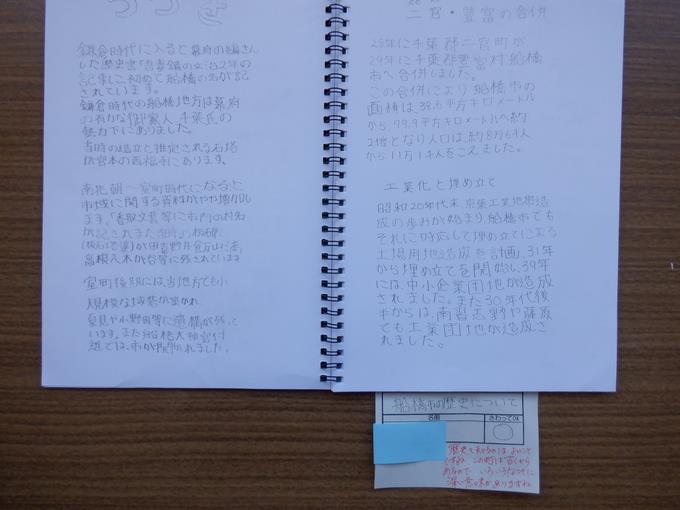 つづき
鎌倉時代に入ると幕府の編さん
した歴史書「吾妻鏡の文治2年の
記事に、初めて船橋の名が記
されています。
鎌倉時代の船橋地方は幕府
の有力な御家人、千葉氏の
勢力下にありました。
当時の造立と推定される石塔
が宮本の西福寺にあります。
南北朝〜室町時代になると
市域に関する資料がやや増加し
ます。「香取文書」等に市内の村名
が記されまた
高根八木が谷等に残されています
室町後期には、当地方でも小
規模な城砦が築かれ
夏見や小野田等に遺構が残って
います。また船橋大神宮付
近では、市が開かれました。
二宮・豊富の合併
28年に千葉郡二宮町が
29年に千葉郡豊富村が船橋
市へ合併しました。
この合併により船橋市の
面積は、38.6平方キロメートル
から、79.9平方キロメートルへ約
2倍となり人口は、約8万6千人
から11万1千人をこえました。
工業化と埋め立て
昭和20年代末、京葉工業地帯造
成の歩みが始まり、船橋市でも
それに対応して埋め立てによる
工場用地造成を計画、31年
から埋め立てを開始し、39年
には、中小企業団地が造成
されました。また30年代後
半からは、南習志野や藤原
でも工業団地が造成さ
れました。
船橋市の歴史について
名前 さわってOK
歴史を